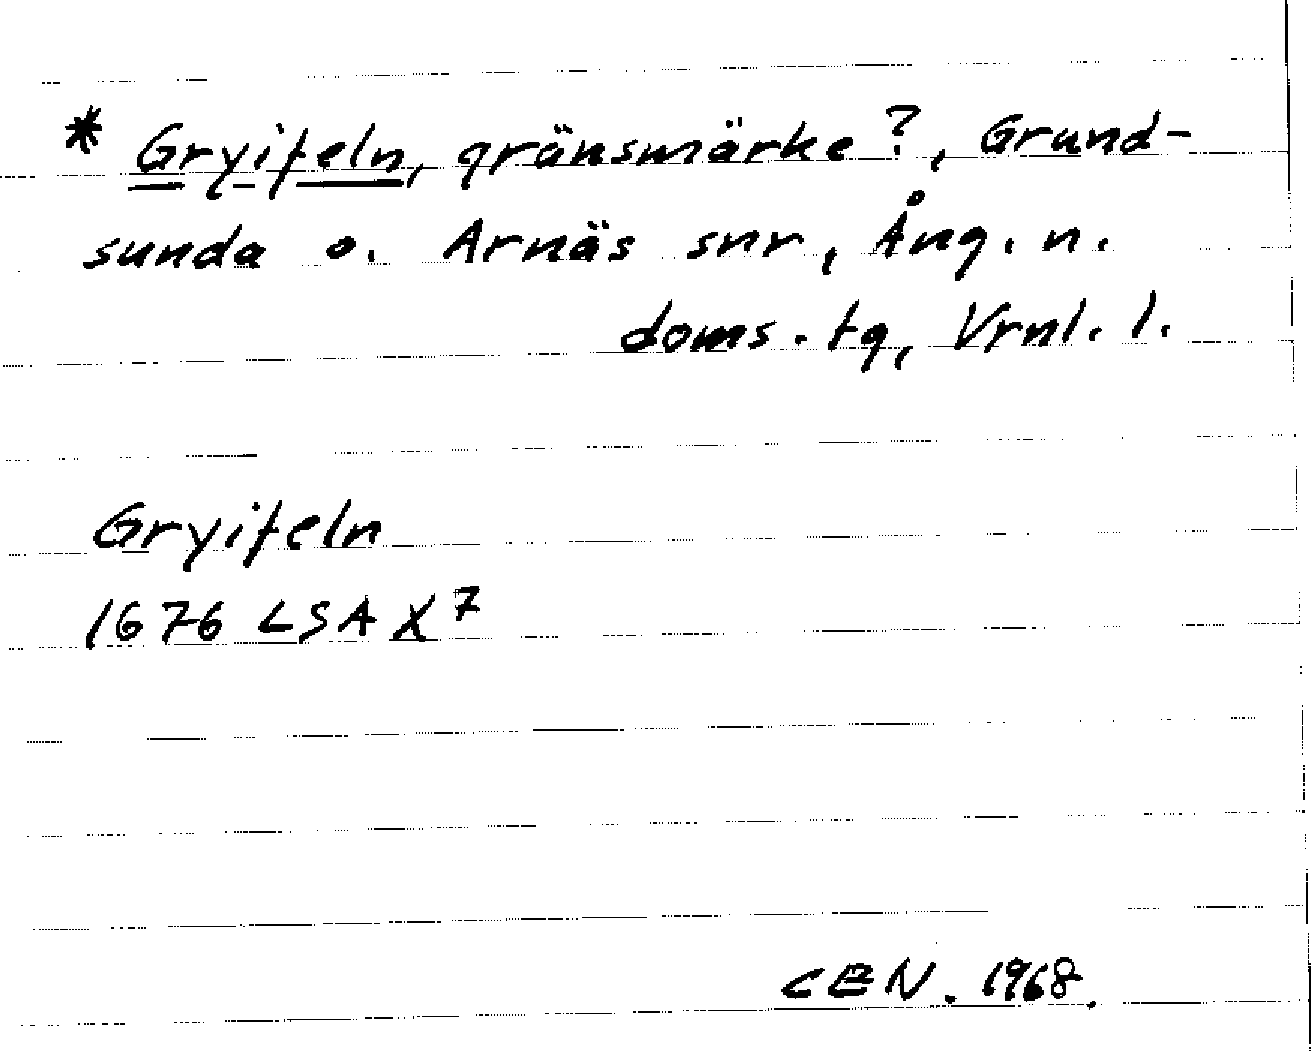 * Gryifeln, gränsmärke?, Grund-
sunda o. Arnäs snr, Ång. n.
doms. tg, Vrnl. l.
Gryifeln
1676 LSA X 7
CEN. 1968.